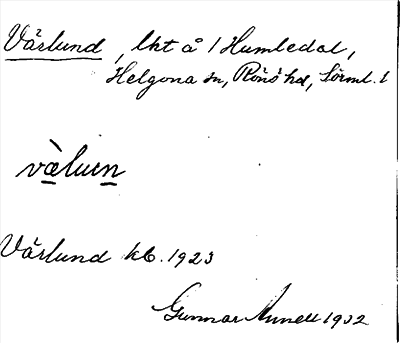 Vårlund, lht å 1 Humledal,
Helgona sn, Rönö hd, Sörml. l
væ̀luen
Vårlund kb. 1923
Gunnar Annell 1932